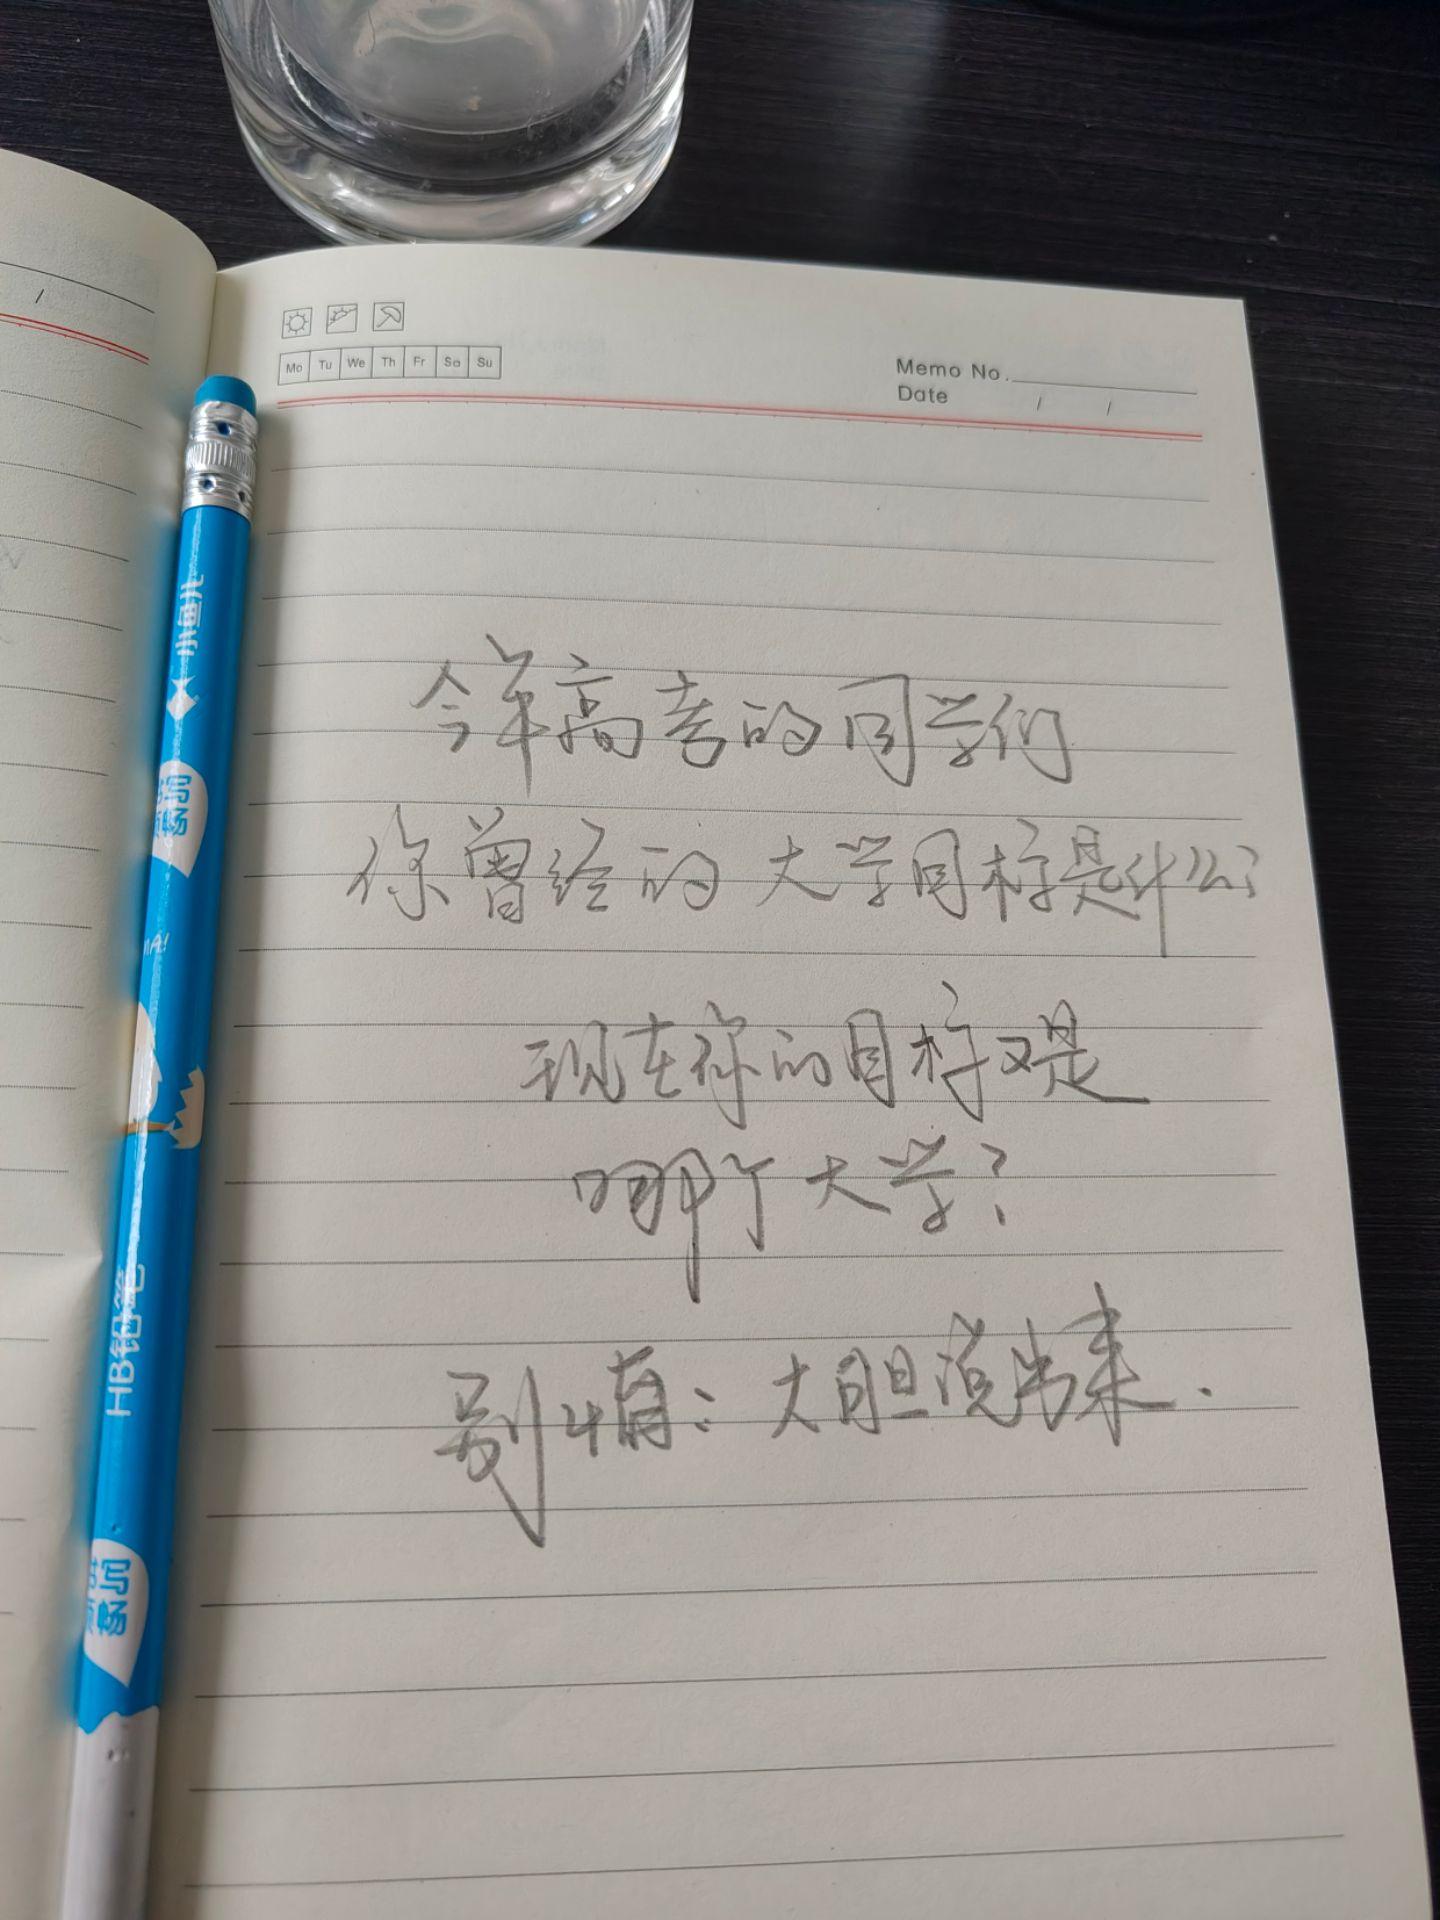 Mo Tu We Th Fr Sa Su
Memo No.
Date / /
今年高考的同学们
你曾经的大学目标是什么？
现在你的目标又是
哪个大学？
别慎：大胆说出来.
小鱼儿
写
顺畅
HB铅笔
写
顺畅